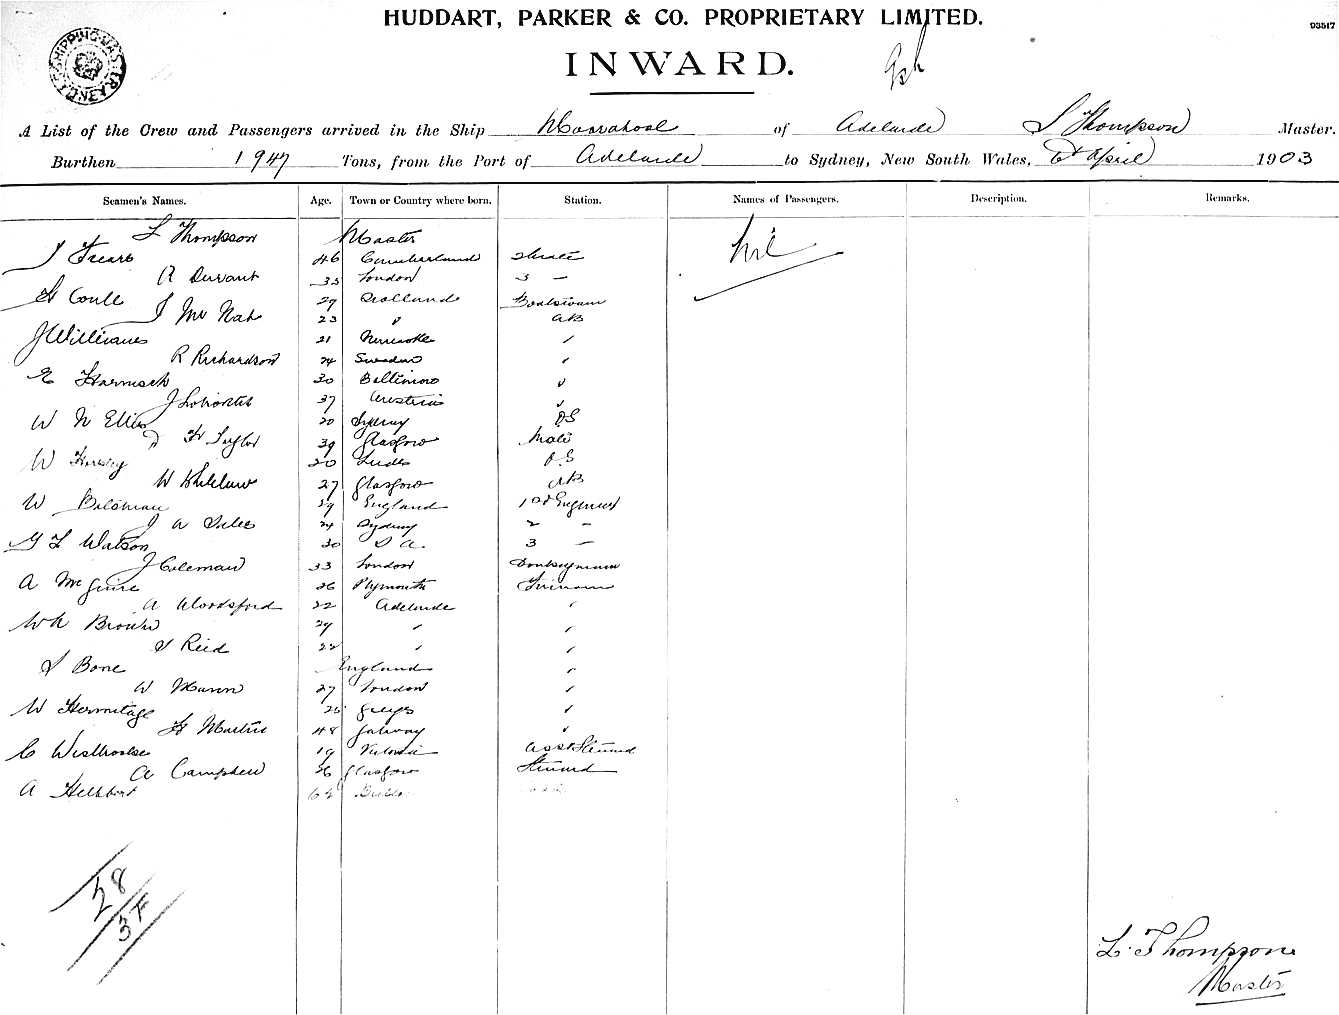 HUDDART, PARKER & CO. PROPRIETARY LIMITED.
03517
SHIPPING MASTER SYDNEY
INWARD.
A List of the Crew and Passengers arrived in the Ship of Adelaide L Thompson Master.
Burthen 1947 Tons, from the Port of Adelaide to Sydney, New South Wales, April 1903
Seamen's Names. Age. Town or Country where born. Station. Names of Passengers. Description. Remarks.
L Thompson Master Nil
46 Cumberland
A Durant 33 London 3 —
H Coull 29 Scotland Boatswain
J 23 " AB
J Williams 21 "
R Richardson 24 Sweden "
E Harnisch 30 Baltimore "
J 37 Austria "
W N Ellis 20 Sydney OS
H Taylor 39 Glasgow Mate
W 20 Leeds OS
W Whitelaw 27 Glasgow AB
W 29 England 1st Engineer
J A 24 Sydney 2 —
G L Watson 30 S A. 3 —
J Coleman 33 London Donkeyman
A McGuire 26 Plymouth Fireman
A Woodsford 22 Adelaide "
W A Brown 29 " "
S Reid 22 " "
S Bone England "
W Mann 27 London "
W Hermitage 26 Grays "
H Martin 48 Galway "
C 19 Victoria Asst Steward
A Campbell 26 Glasgow Steward
A 62
28
3F
L. Thompson
Master